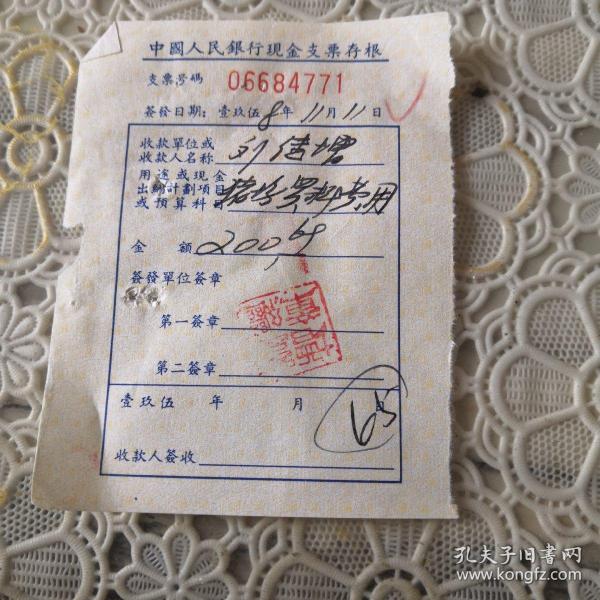 中國人民銀行現金支票存根
支票號碼 06684771
簽發日期：壹玖伍8年11月11日
收款單位或
收款人名称
用途或現金
出納計劃項目
或預算科目
費用
金額 200
簽發單位簽章
第一簽章
第二簽章
壹玖伍 年 月
收款人簽收
孔夫子旧書网
www.kongfz.com